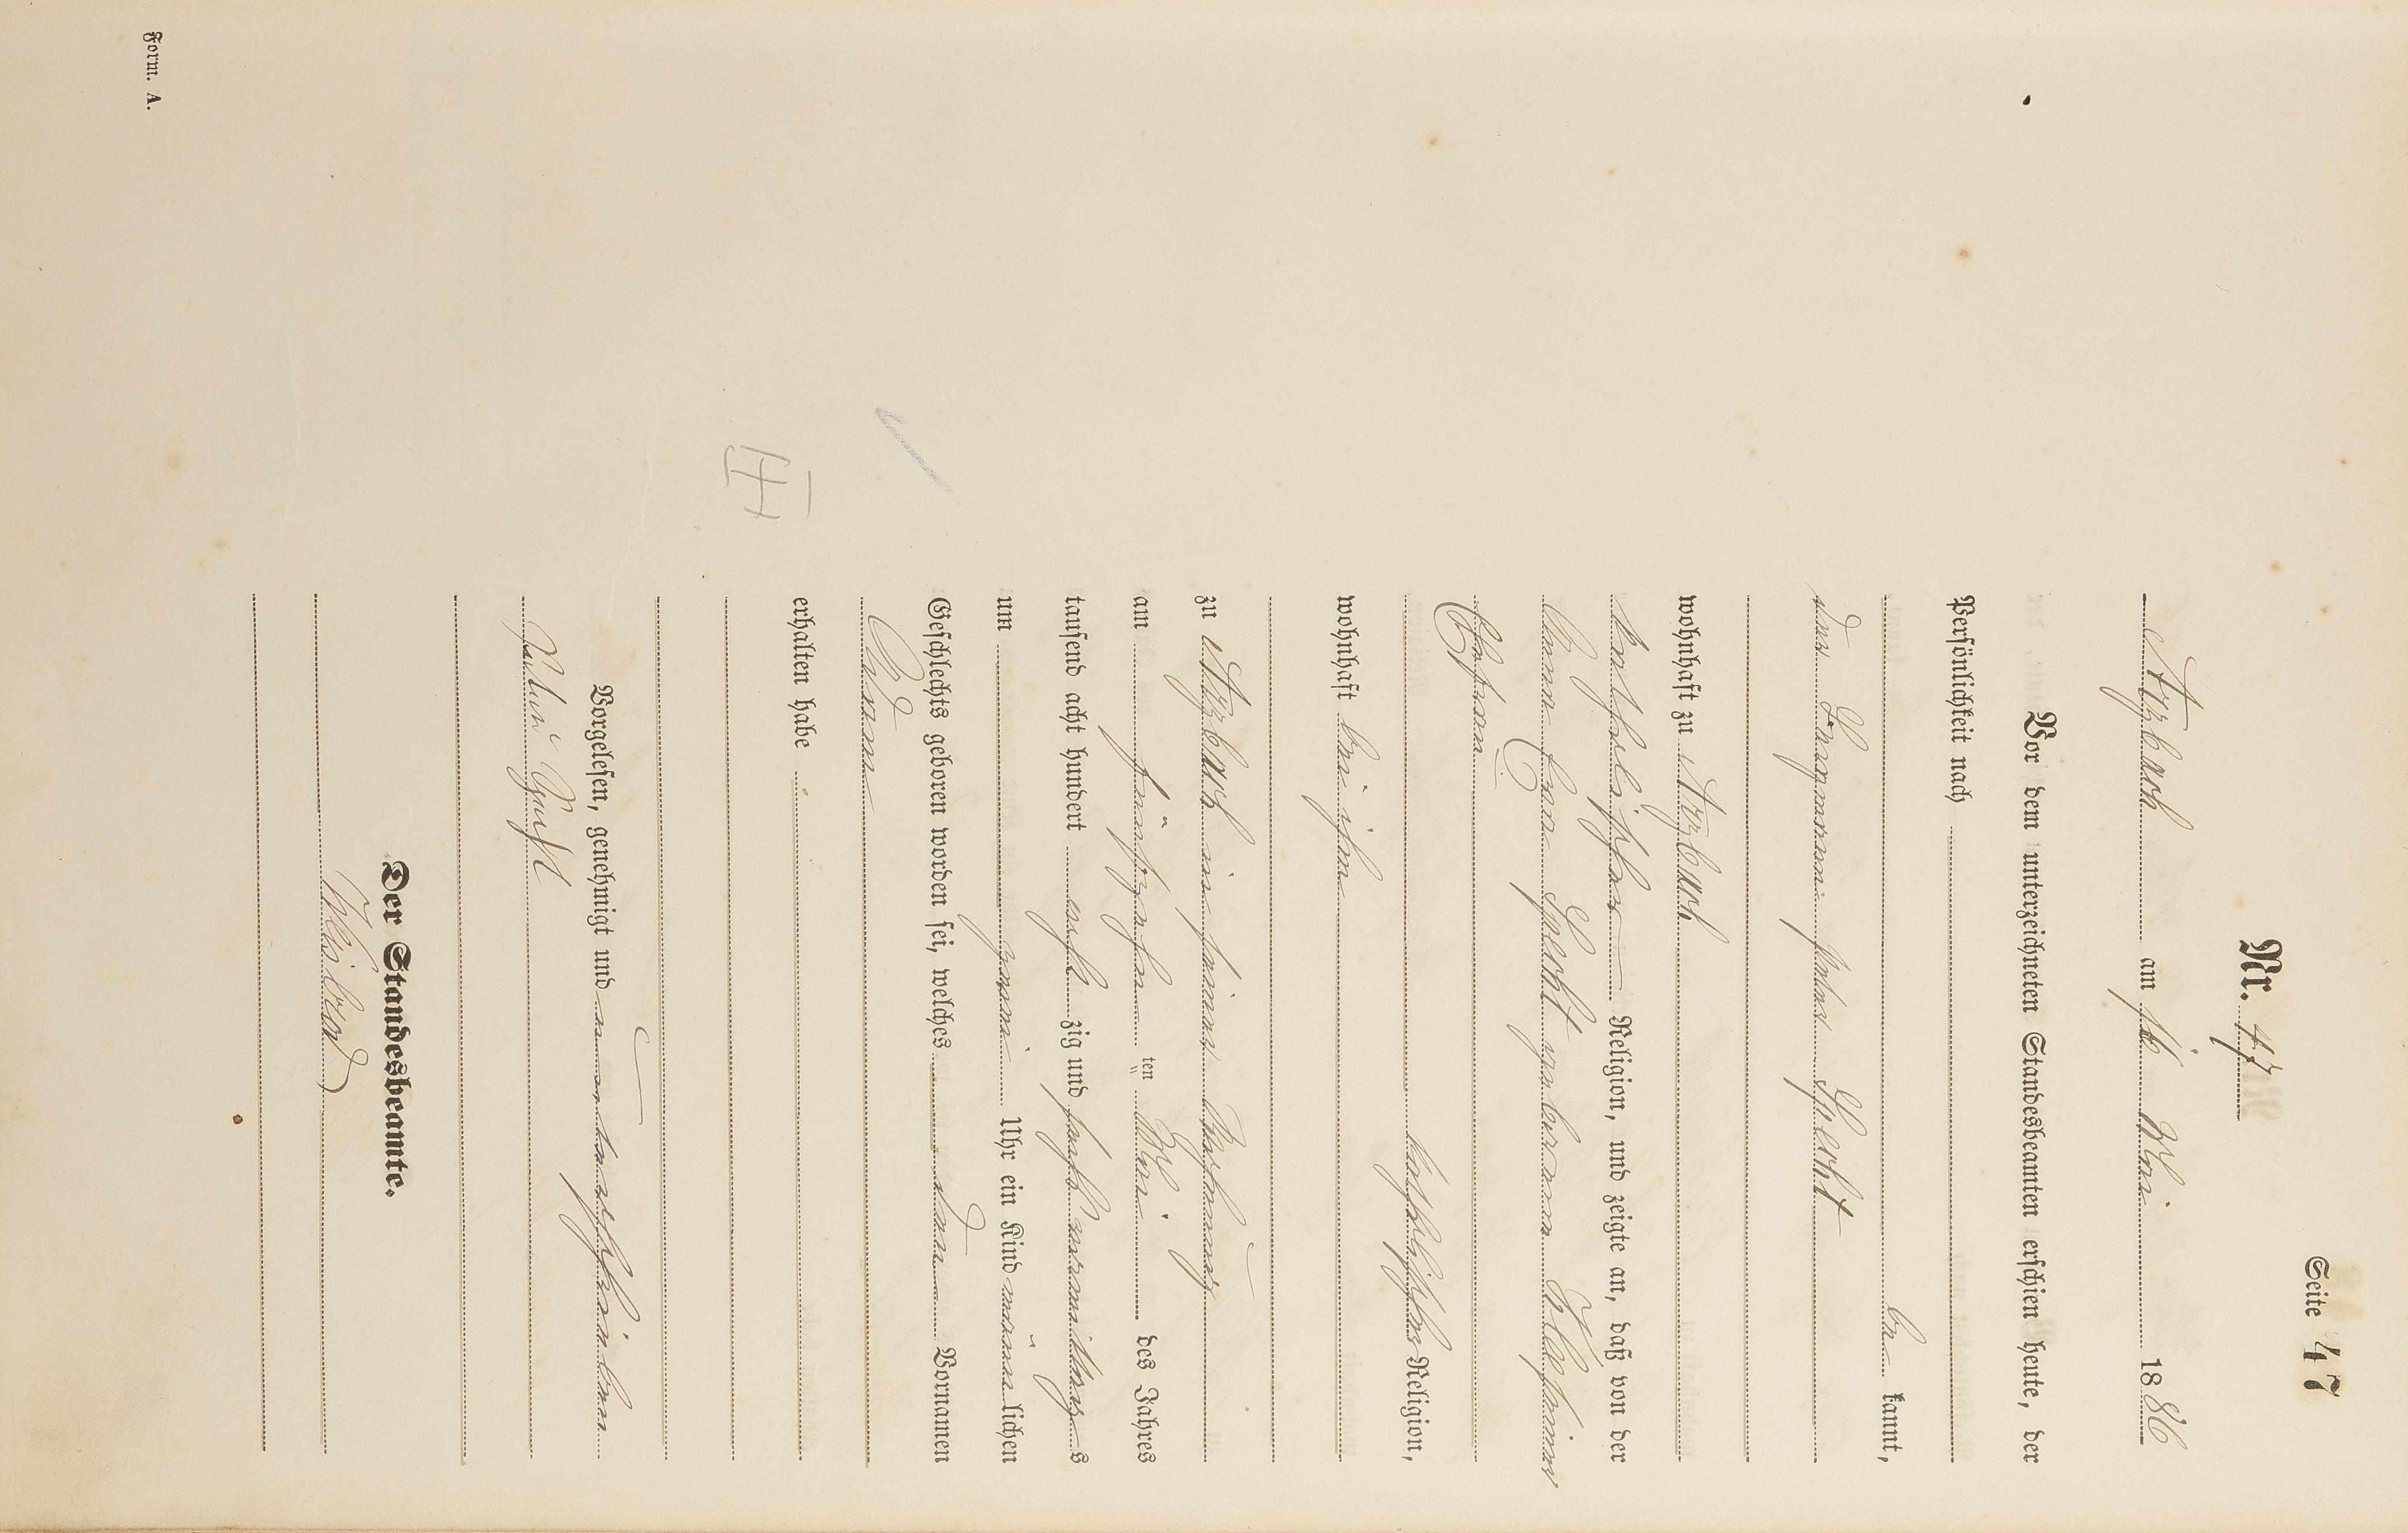 Seite 47
Nr. 47
Arzbach am 16 Mai 1886
Vor dem unterzeichneten Standesbeamten erschien heute, der
Persönlichkeit nach
be kannt,
der Bergmann Peter Specht
wohnhaft zu Arzbach
katholischer Religion, und zeigte an, daß von der
Anna Specht geborenen seiner
Ehefrau
katholischer Religion,
wohnhaft bei ihm
zu Arzbach in seiner Wohnung
am fünfzehn ten Mai des Jahres
tausend acht hundert acht zig und sechs vormittag s
um zwei Uhr ein Kind männ lichen
Geschlechts geboren worden sei, welches den Vornamen
erhalten habe
Vorgelesen, genehmigt und unterschrieben
Peter Specht
Der Standesbeamte.
Form. A.